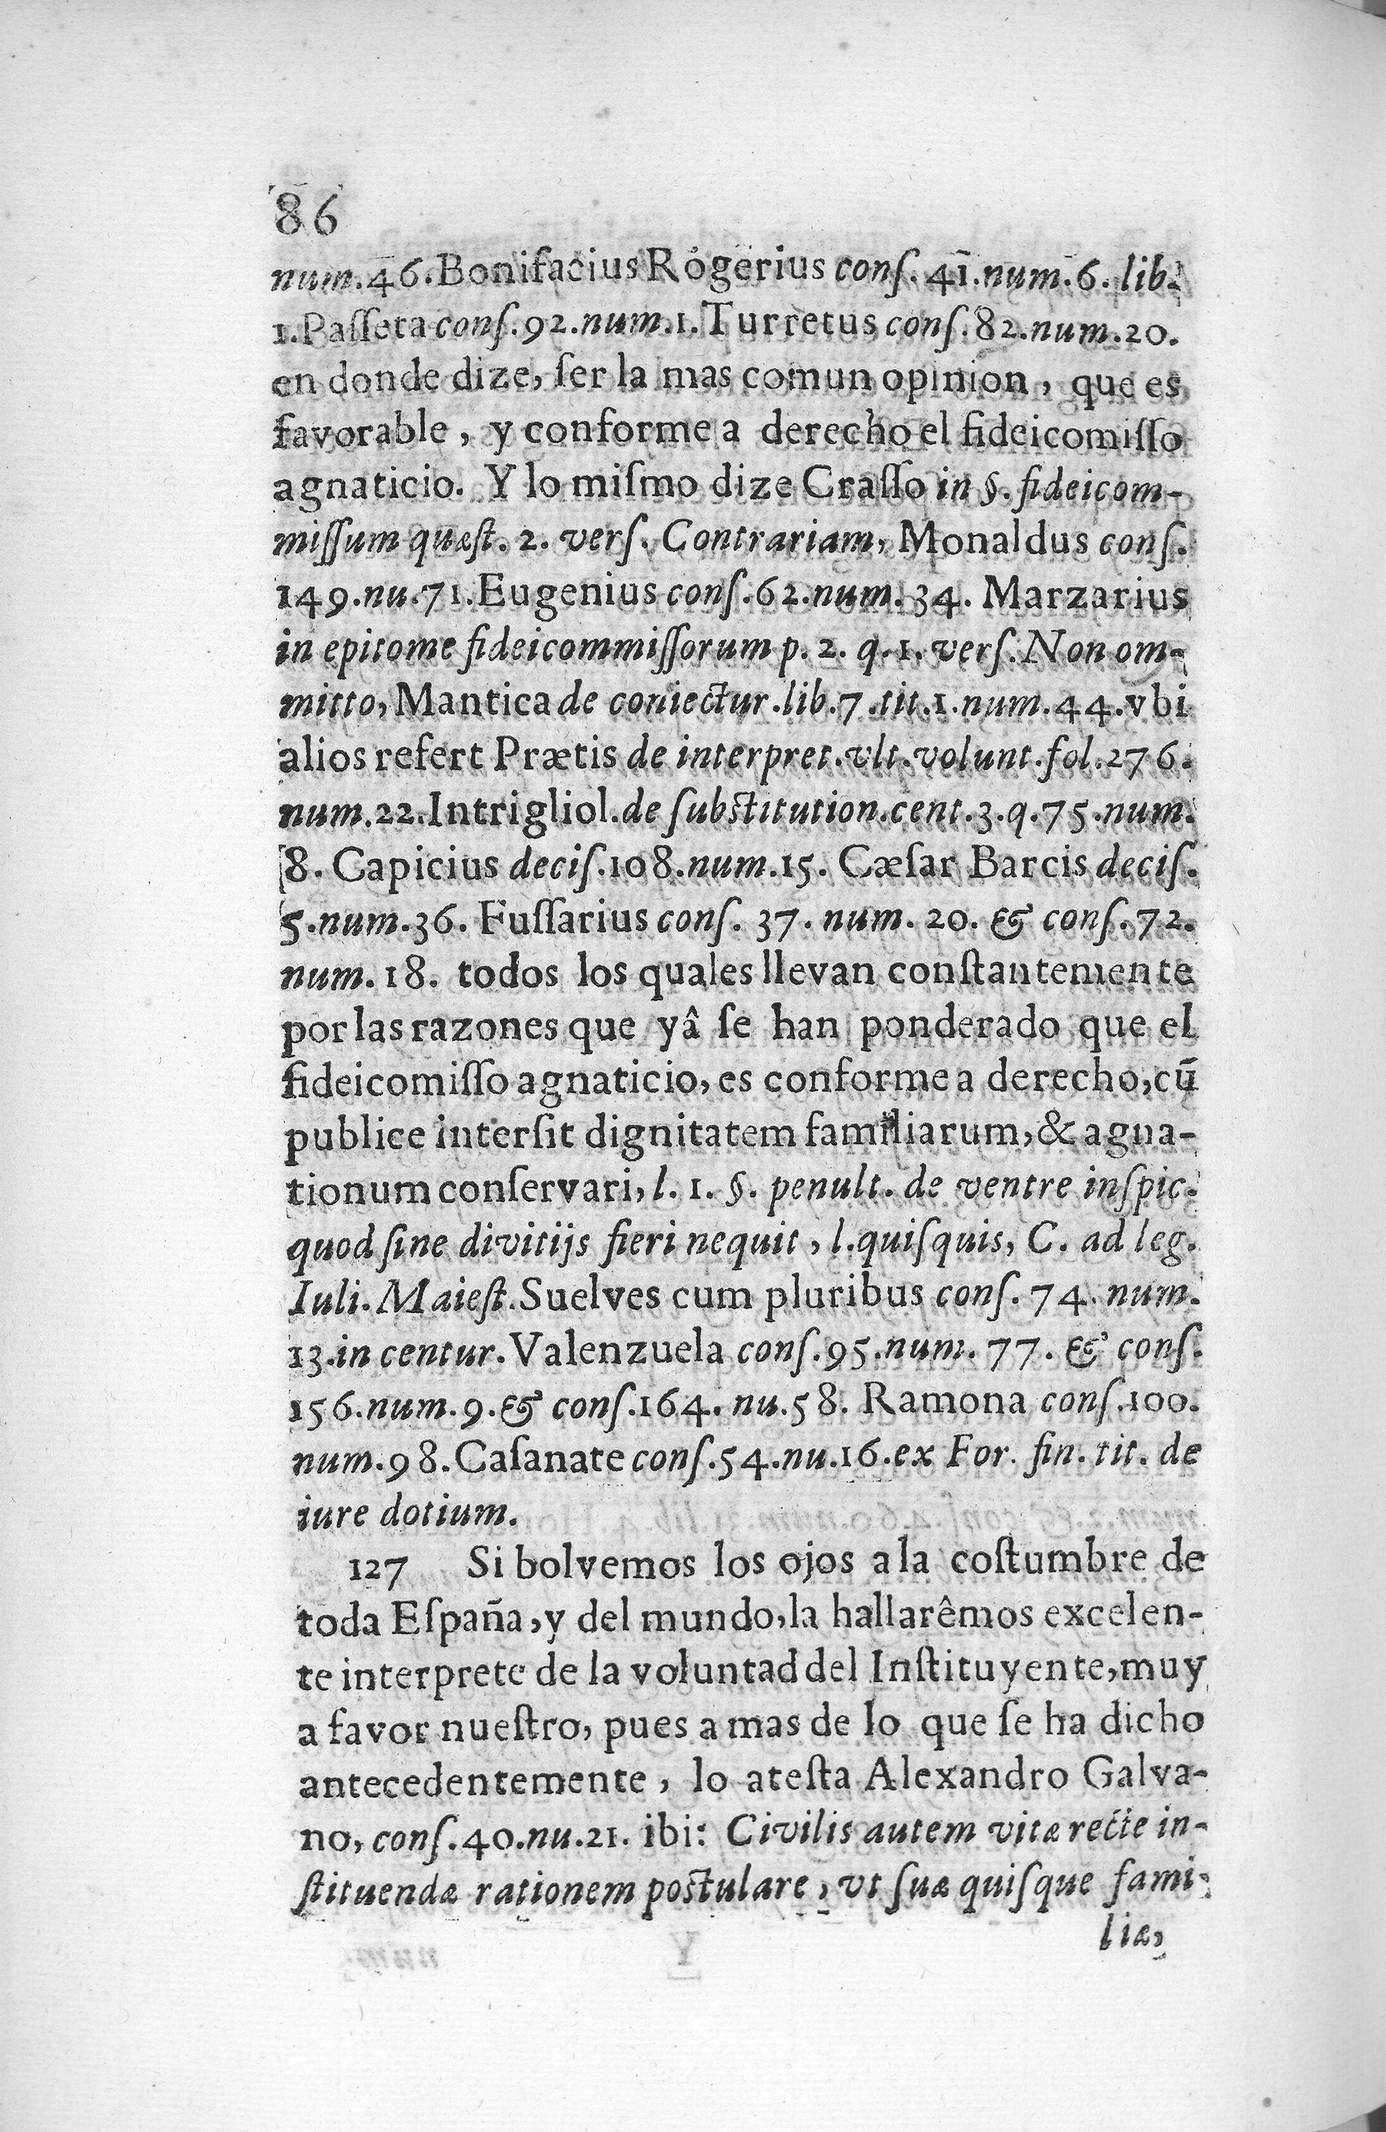 86
num.46.Bonifacius Rogerius conſ.41.num.6.lib.
1.Paſſeta conſ.92.num.1.Turretus conſ.82.num.20.
en donde dize, ſer la mas comun opinion, que es
favorable, y conforme a derecho el fideicomiſſo
agnaticio. Y lo miſmo dize Craſſo in §. fideicom-
miſſum quæſt. 2. verſ. Contrariam, Monaldus conſ.
149.nu.71.Eugenius conſ.62.num.34. Marzarius
in epitome fideicommiſſorum p. 2. q.1. verſ. Non om-
mitto, Mantica de coniectur.lib.7.tit.1.num.44.vbi
alios refert Prætis de interpret.vlt.volunt.fol.276.
num.22.Intrigliol.de ſubſtitution.cent.3.q.75.num.
8. Capicius deciſ.108.num.15. Cæſar Barcis deciſ.
5.num.36. Fuſſarius conſ. 37. num. 20. & conſ.72.
num.18. todos los quales llevan conſtantemente
por las razones que yâ ſe han ponderado que el
fideicomiſſo agnaticio, es conforme a derecho, cū
publice interſit dignitatem familiarum, & agna-
tionum conſervari, l. 1. §. penult. de ventre inſpic.
quod ſine divitijs fieri nequit, l.quiſquis, C. ad leg.
Iuli. Maieſt.Suelves cum pluribus conſ. 74. num.
13.in centur.Valenzuela conſ.95.num. 77. & conſ.
156.num.9.& conſ.164. nu.58. Ramona conſ.100.
num.98.Caſanate conſ.54.nu.16.ex For. fin. tit. de
iure dotium.
127 Si bolvemos los ojos a la coſtumbre de
toda Eſpaña, y del mundo, la hallarêmos excelen-
te interprete de la voluntad del Inſtituyente, muy
a favor nueſtro, pues a mas de lo que ſe ha dicho
antecedentemente, lo ateſta Alexandro Galva-
no, conſ.40.nu.21. ibi: Civilis autem vitæ recte in-
ſtituendæ rationem poſtulare, vt ſuæ quiſque fami-
liæ,